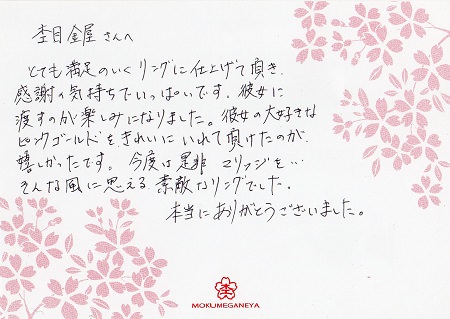 杢目金屋さんへ
とても満足のいくリングに仕上げて頂き、
感謝の気持ちでいっぱいです。彼女に
渡すのが楽しみになりました。彼女の大好きな
ピンクゴールドをきれいにいれて頂けたのが
嬉しかったです。今度は是非マリッジを…
そんな風に思える素敵なリングでした。
本当にありがとうございました。
杢
MOKUMEGANEYA